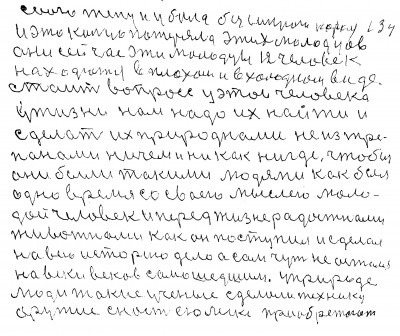 свого типу и была бы
и это кто-то потерял этих молодцов
они сейчас эти молодцы 12 человек
находятся в плохом и в холодном виде.
стоит вопрос у этого человека
в жизни нам надо их найти и
сделать их природнами не истре-
панами ничем и никак нигде, чтобы
они были такими людями как был
одно время со своего мыслею моло-
дой человек и перед жизнерадостнами
животнами как он поступил и сделал
на всю историю дело а сам чуть не остался
на веки веков самошедшим. у природе
люди такие ученые сделали технику
другие приобретают